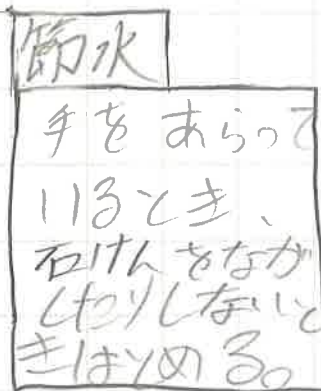 節水
手をあらって
いるとき、
石けんをなが
したりしないと
きはとめる。